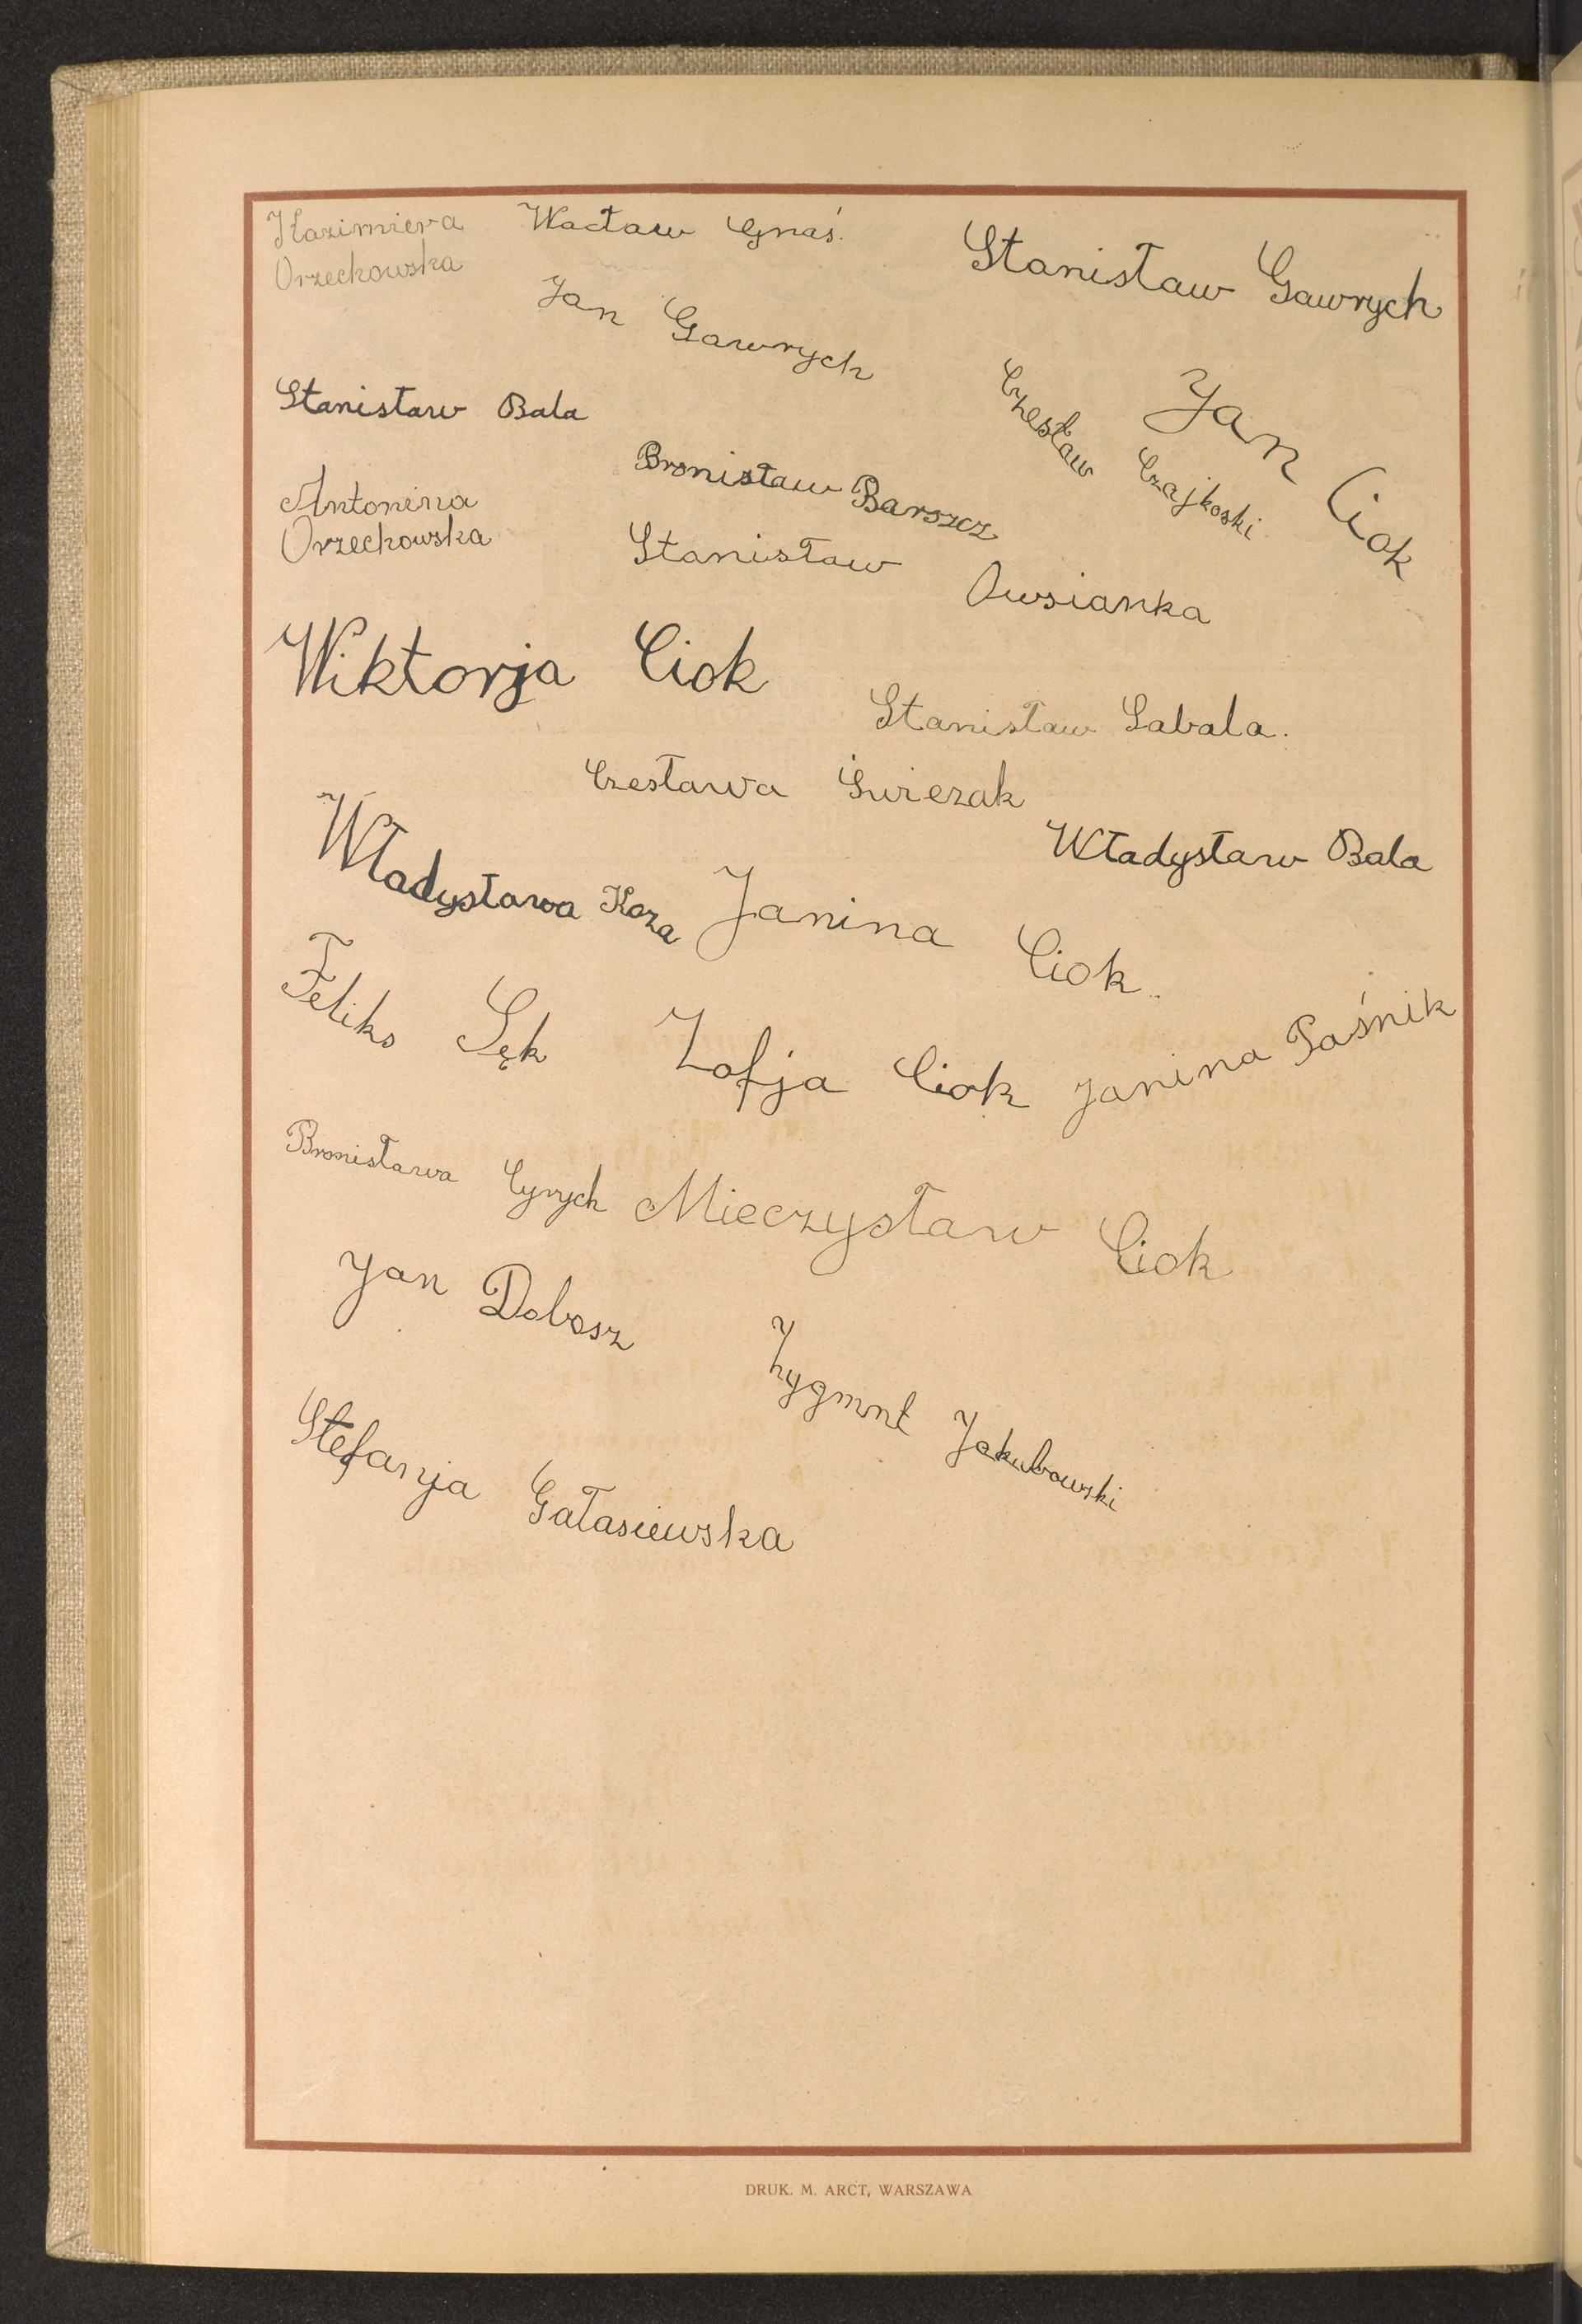 Kazimiera
Orzechowska
Wacław Gnaś.
Stanisław Gawrych
Jan Gawrych
Stanisław Bala
Czesław Czajkoski
Jan Ciok
Bronisław Barszcz
Antonina
Orzechowska
Stanisław Owsianka
Wiktorja Ciok
Stanisław Sabala.
Czesława Świerzak
Władysław Bala
Władysława Koza
Janina Ciok.
Feliks Sęk
Zofja Ciok
Janina Paśnik
Bronisława Cyrych
Mieczysław Ciok
Jan Dobosz
Zygmnt Jakubowski
Stefanja Gałasiewska
DRUK. M. ARCT, WARSZAWA